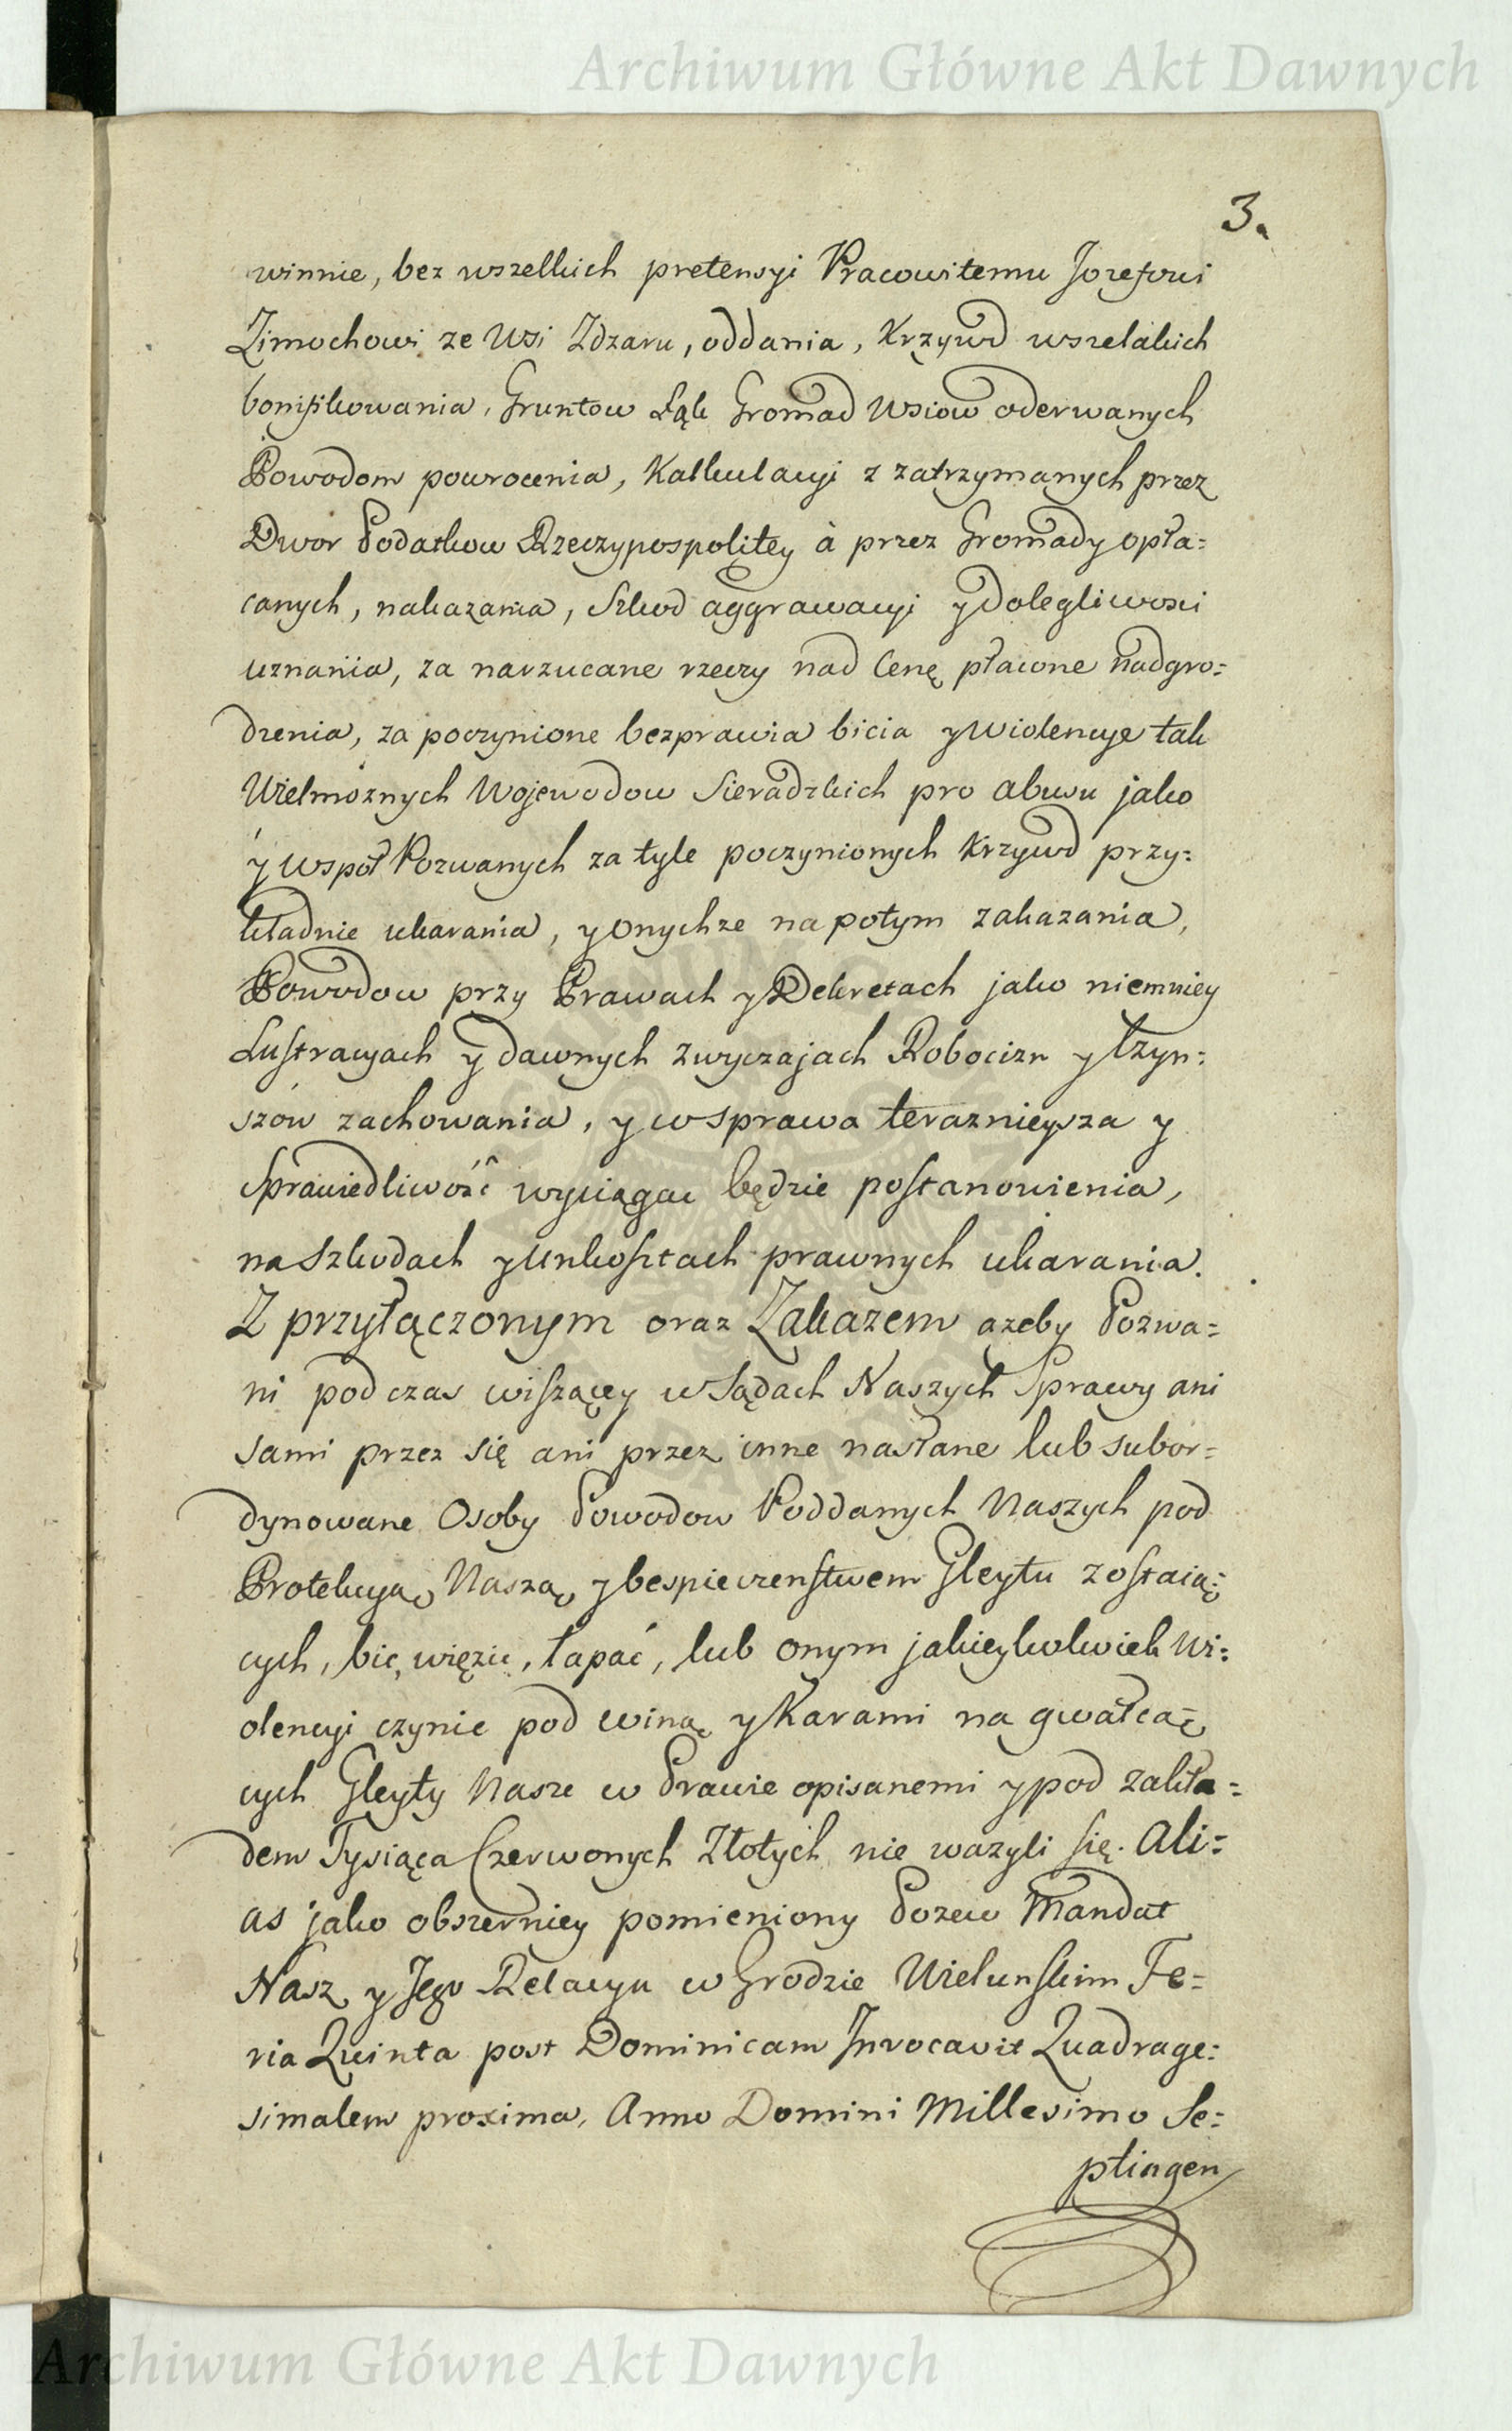 Archiwum Główne Akt Dawnych
3.
winnie, bez wszelkich pretensyi Pracowitemu Jozefowi
Zimochowi ze Wsi Zdzaru, oddania, Krzywd wszelakich
bonifikowania, Gruntow Łąk Gromad Wsiow oderwanych
Powodom powrocenia, Kalkulacyi z zatrzymanych przez
Dwor Podatkow Rzeczypospolitey à przez Gromady opła=
canych, nakazania, Szkod aggrawacyi y Dolegliwosci
uznania, za narzucane rzeczy nad Cenę płacone nadgro=
dzenia, za poczynione bezprawia bicia y Wiolencye tak
Wielmożnych Wojewodow Sieradzkich pro abusu jako
y Wspoł Pozwanych za tyle poczynionych Krzywd przy=
kładnie ukarania, y Onychze na potym zakazania,
Powodow przy Prawach y Dekretach jako niemniey
Lustracyach y dawnych zwyczajach Robocizn y Czyn=
szów zachowania, y co sprawa teraznieysza y
Sprawiedliwość wyciągac będzie postanowienia,
na Szkodach y Unkosztach prawnych ukarania.
Z przyłączonym oraz Zakazem azeby Pozwa=
ni pod czas wiszącey w Sądach Naszych Sprawy ani
sami przez się ani przez inne nasłane lub subor=
dynowane Osoby Powodow Poddanych Naszych pod
Protekcyą Naszą y bespieczenstwem Gleytu zostaią=
cych, bic, więzic, łapać, lub onym jakieykolwiek Wi=
olencyi czynic pod winą y Karami na gwałcą=
cych Gleyty Nasze w Prawie opisanemi y pod zakła=
dem Tysiąca Czerwonych Złotych nie wazyli się. Ali=
as jako obszerniey pomieniony Pozew Mandat
Nasz y Jego Relacya w Grodzie Wielunskim Fe=
ria Quinta post Dominicam Invocavit Quadrage=
simalem proxima, Anno Domini Millesimo Se=
ptingen
Archiwum Główne Akt Dawnych